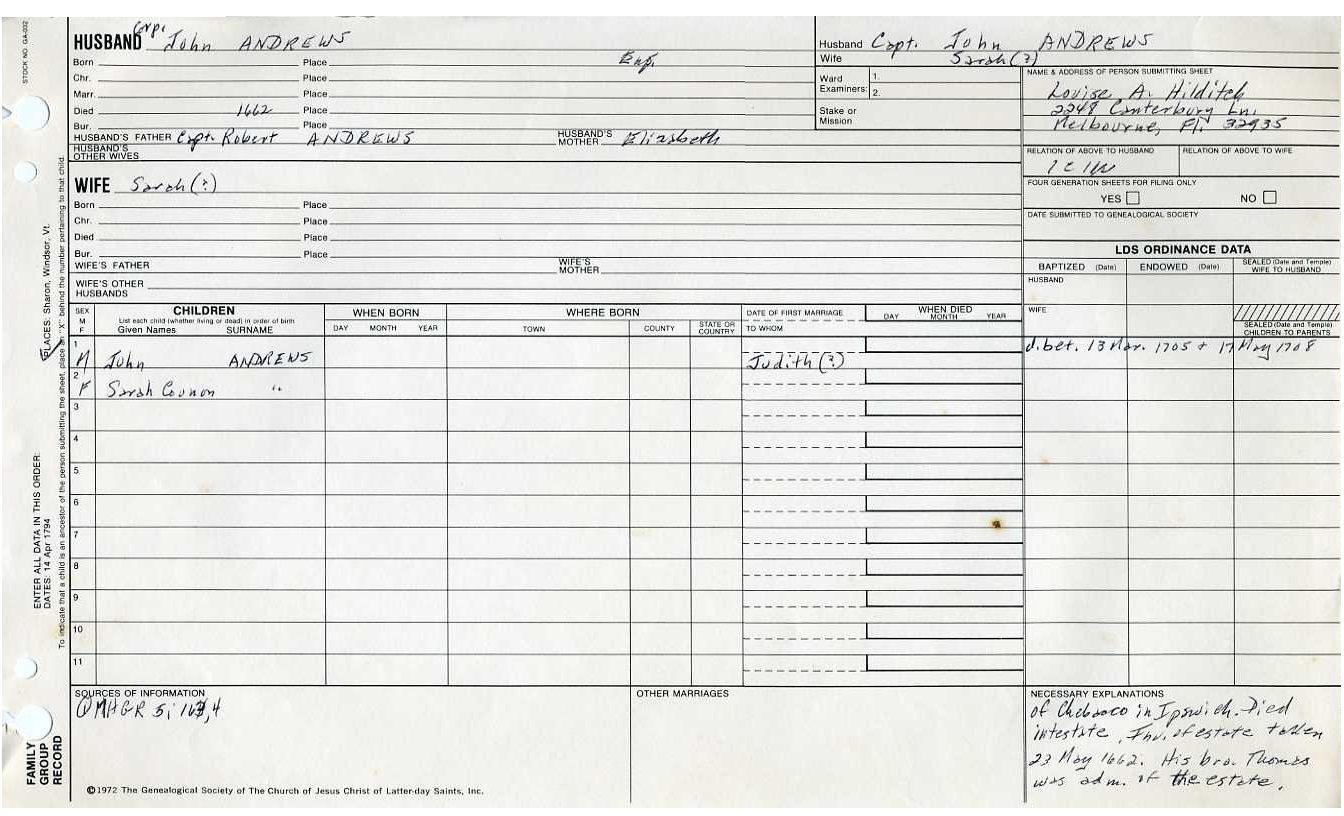 STOCK NO. GA-032
HUSBAND Corp. John ANDREWS
Born Place Eng.
Chr. Place
Marr. Place
Died 1662 Place
Bur. Place
HUSBAND'S FATHER Capt. Robert ANDREWS HUSBAND'S MOTHER Elizabeth
HUSBAND'S OTHER WIVES
Husband Capt. John ANDREWS
Wife Sarah (?)
Ward Examiners: 1.
2.
Stake or Mission
NAME & ADDRESS OF PERSON SUBMITTING SHEET
Louise A. Hilditch
2248 Canterbury Ln.
Melbourne, Fl. 32935
RELATION OF ABOVE TO HUSBAND RELATION OF ABOVE TO WIFE
FOUR GENERATION SHEETS FOR FILING ONLY
YES NO
DATE SUBMITTED TO GENEALOGICAL SOCIETY
WIFE Sarah (?)
Born Place
Chr. Place
Died Place
Bur. Place
WIFE'S FATHER WIFE'S MOTHER
WIFE'S OTHER HUSBANDS
LDS ORDINANCE DATA
BAPTIZED (Date) ENDOWED (Date) SEALED (Date and Temple) WIFE TO HUSBAND
HUSBAND
WIFE
SEALED (Date and Temple) CHILDREN TO PARENTS
SEX M F
CHILDREN
List each child (whether living or dead) in order of birth
Given Names SURNAME
WHEN BORN
DAY MONTH YEAR
WHERE BORN
TOWN COUNTY STATE OR COUNTRY
DATE OF FIRST MARRIAGE
TO WHOM
WHEN DIED
DAY MONTH YEAR
1 M John ANDREWS Judith (?) d. bet. 13 Mar. 1705 + 17 May 1708
2 F Sarah Counon "
3
4
5
6
7
8
9
10
11
SOURCES OF INFORMATION
MHGR 5;
OTHER MARRIAGES
NECESSARY EXPLANATIONS
of Chebacco in Ipswich. Died
intestate. Inv. of estate taken
23 May 1662. His bro. Thomas
was adm. of the estate.
©1972 The Genealogical Society of The Church of Jesus Christ of Latter-day Saints, Inc.
FAMILY GROUP RECORD
ENTER ALL DATA IN THIS ORDER:
DATES: 14 Apr 1794
PLACES: Sharon, Windsor, Vt.
To indicate that a child is an ancestor of the person submitting the sheet, place an "X" behind the number pertaining to that child.